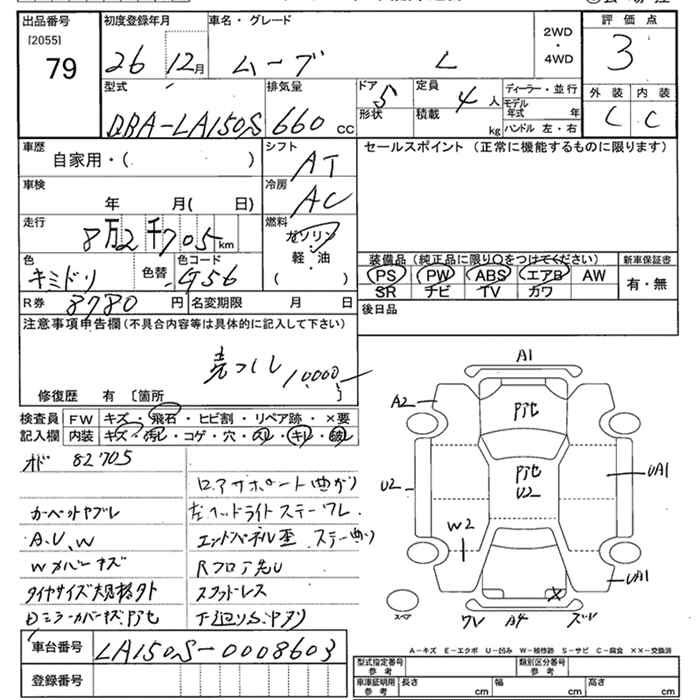 出品番号 初度登録年月 車名・グレード 2WD・4WD 評価点
[2055]
79 26 12月 ムーブ L 3
型式 排気量 ドア 5 定員 4人 ディーラー・並行 外装 内装
DBA-LA150S 660 cc 形状 積載 kg モデル年式 年 ハンドル 左・右 C C
車歴 自家用・( ) シフト AT セールスポイント (正常に機能するものに限ります)
車検 年 月( 日) 冷房 AC
走行 8万2千705km 燃料 ガソリン・軽・油 ( )
色 キミドリ 色替 色コード G56
装備品(純正品に限り○をつけてください) 新車保証書
PS PW ABS エアB AW 有・無
SR ナビ TV カワ
R券 8780円 名変期限 月 日 後日品
注意事項申告欄(不具合内容等は具体的に記入して下さい)
売つくし 10000
修復歴 有 〔箇所 〕
検査員 FW キズ・飛石・ヒビ割・リペア跡・×要
記入欄 内装 キズ・汚レ・コゲ・穴・スレ・キレ・破レ
オド 82705
ロアサポート曲がり
カーペットヤブレ 左ヘッドライトステーワレ
A、U、W エンドパネル歪 ステー曲り
Wカバーキズ Rフロア先U
タイヤサイズ大 スカッフトレス
ミラーカバーキズ
下廻りS、
車台番号 LA150S-0008603
登録番号
A1
A2
U2
U2
UA1
W2
UA1
スペア
ワレ A4 ズレ
A-キズ E-エクボ U-凹み W-補修跡 S-サビ C-腐食 XX-交換済
型式指定番号 参考 類別区分番号 参考
車庫証明用 参考 長さ cm 幅 cm 高さ cm